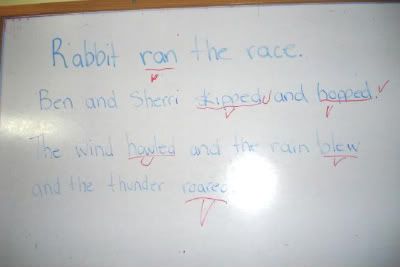 Rabbit ran the race.
Ben and Sherri skipped and hopped.
The wind howled and the rain blew
and the thunder roared.